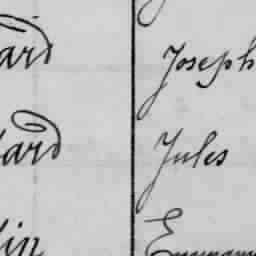 ard Joseph
ard Jules
lin Emmanu